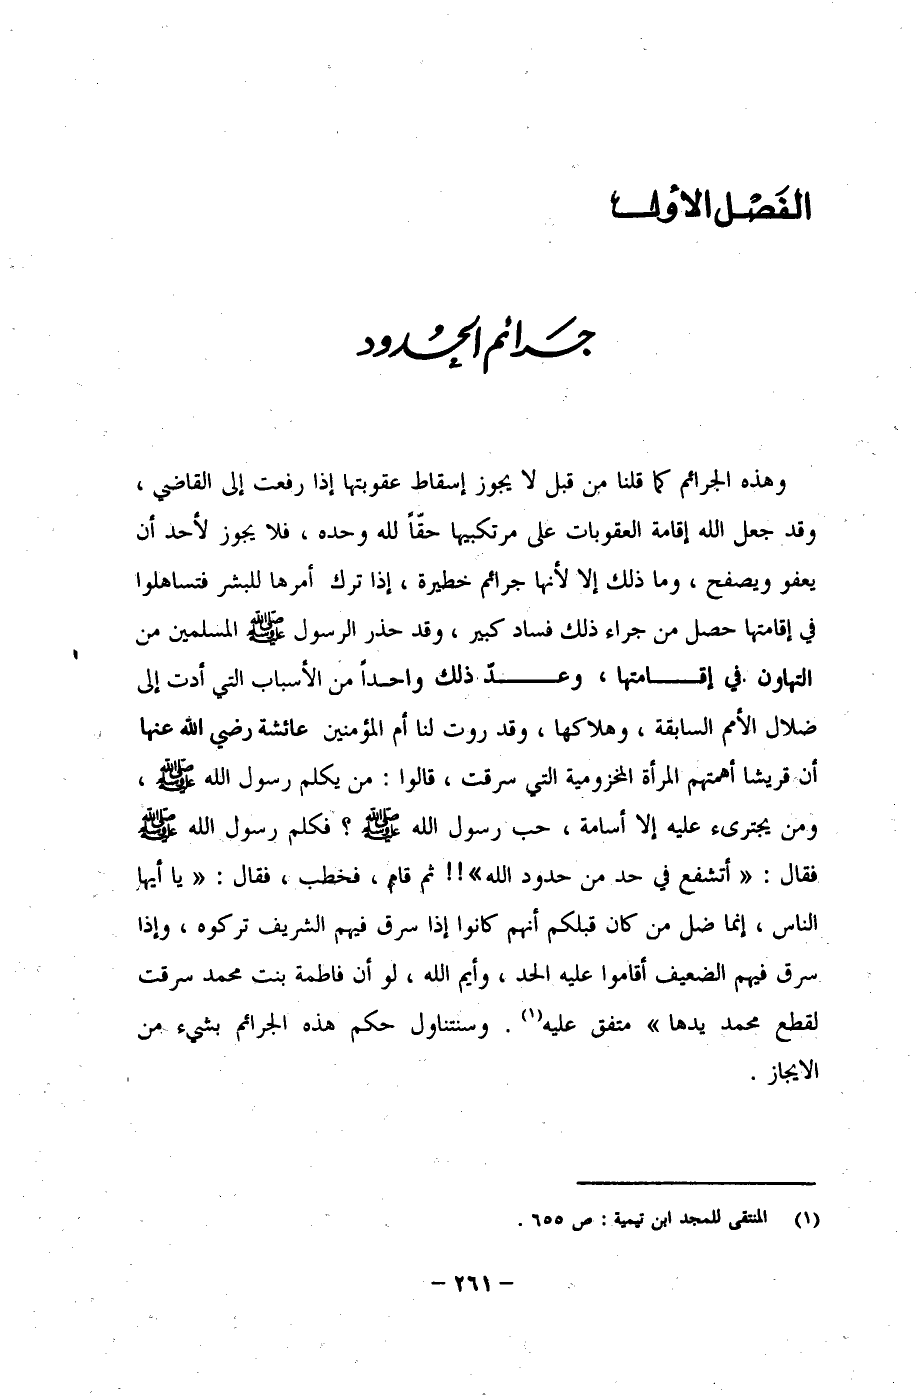 الفَصْل الأول
جرائم الحُدود
وهذه الجرائم كما قلنا من قبل لا يجوز إسقاط عقوبتها إذا رفعت إلى القاضي ،
وقد جعل الله إقامة العقوبات على مرتكبيها حقّاً لله وحده ، فلا يجوز لأحد أن
يعفو ويصفح ، وما ذلك إلا لأنها جرائم خطيرة ، إذا ترك أمرها للبشر فتساهلوا
في إقامتها حصل من جراء ذلك فساد كبير ، وقد حذر الرسول ﷺ المسلمين من
التهاون في إقـــامتها ، وعـــدّ ذلك واحداً من الأسباب التي أدت إلى
ضلال الأمم السابقة ، وهلاكها ، وقد روت لنا أم المؤمنين عائشة رضي الله عنها
أن قريشا أهمتهم المرأة المخزومية التي سرقت ، قالوا : من يكلم رسول الله ﷺ ،
ومن يجترىء عليه إلا أسامة ، حب رسول الله ﷺ ؟ فكلم رسول الله ﷺ
فقال : « أتشفع في حد من حدود الله» !! ثم قام ، فخطب ، فقال : « يا أيها
الناس ، إنما ضل من كان قبلكم أنهم كانوا إذا سرق فيهم الشريف تركوه ، وإذا
سرق فيهم الضعيف أقاموا عليه الحد ، وأيم الله ، لو أن فاطمة بنت محمد سرقت
لقطع محمد يدها » متفق عليه(١) . وسنتناول حكم هذه الجرائم بشيء من
الايجاز .
(١) المنتقى للمجد ابن تيمية : ص ٦٥٥ .
– ٢٦١ –